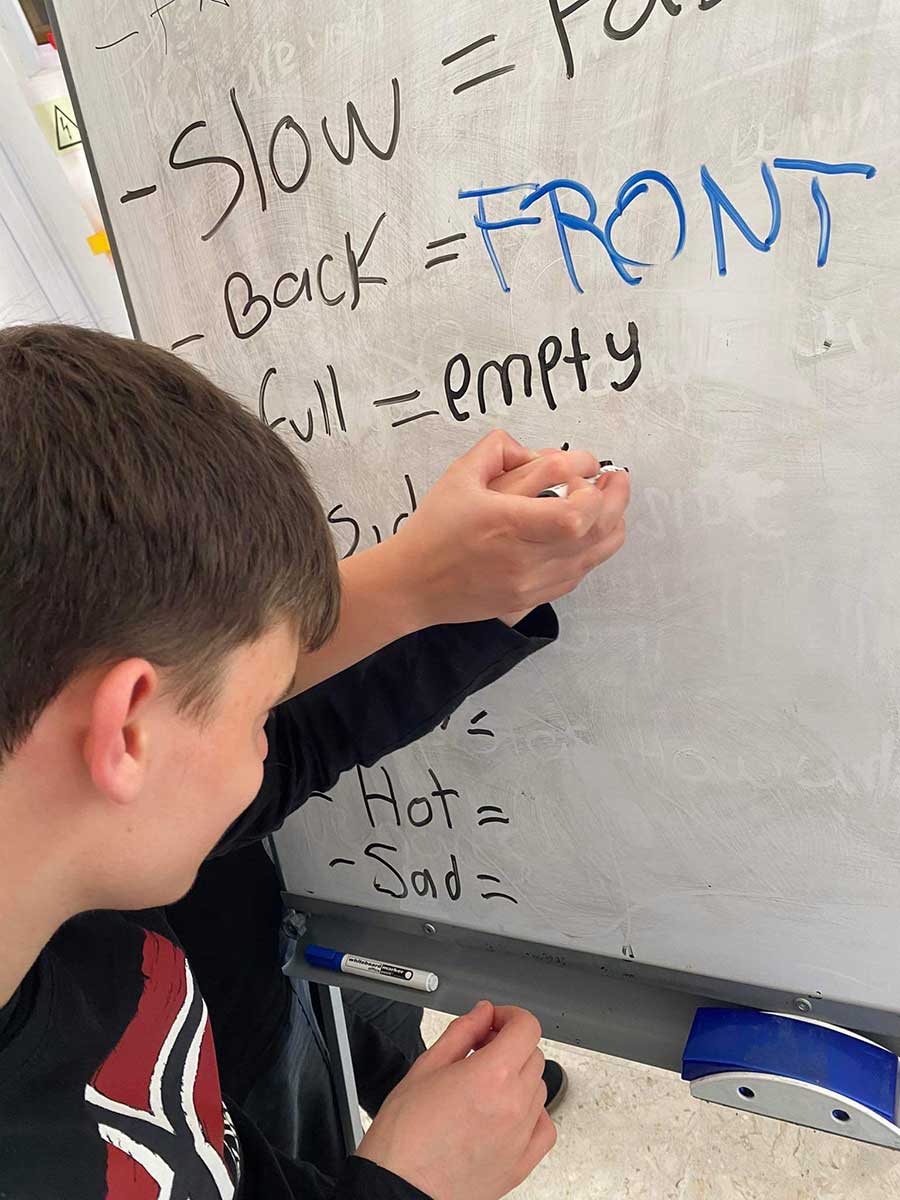 - Slow =
- Back = FRONT
full = empty
- Hot =
- Sad =
whiteboard marker